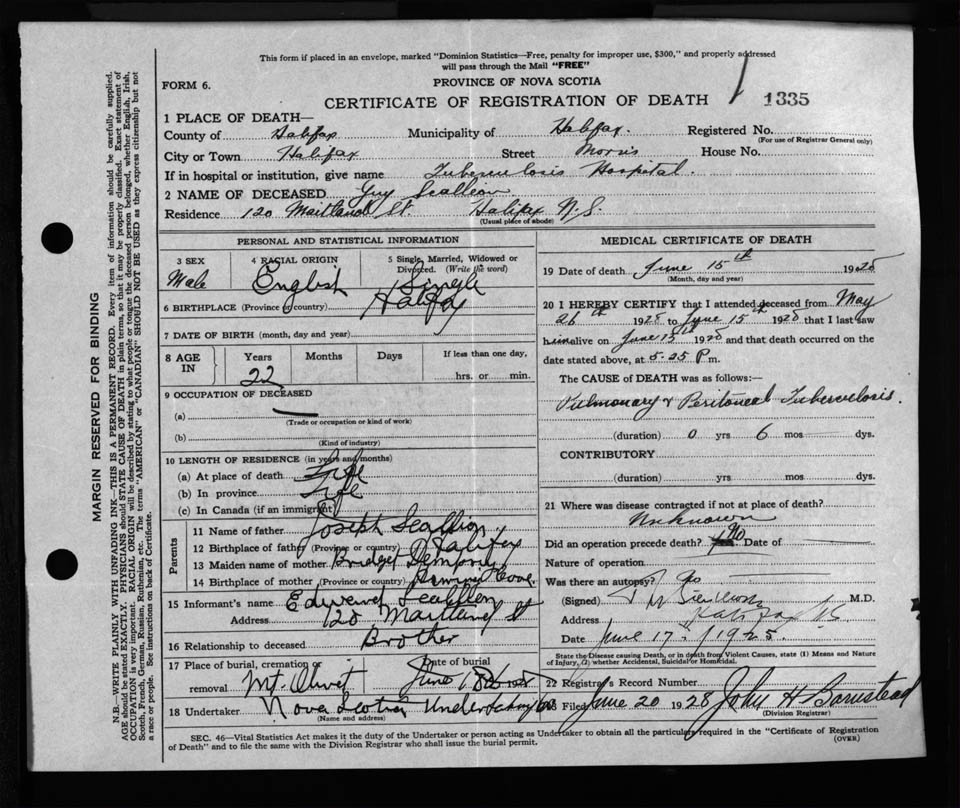 This form if placed in an envelope, marked "Dominion Statistics—Free, penalty for improper use, $300," and properly addressed
will pass through the Mail "FREE"
FORM 6.
PROVINCE OF NOVA SCOTIA
CERTIFICATE OF REGISTRATION OF DEATH
1335
1 PLACE OF DEATH—
County of Halifax Municipality of Halifax. Registered No.
(For use of Registrar General only)
City or Town Halifax Street Morris House No.
If in hospital or institution, give name Tuberculosis Hospital.
2 NAME OF DECEASED Guy Scallion
Residence 120 Maitland St. Halifax N.S.
(Usual place of abode)
PERSONAL AND STATISTICAL INFORMATION
3 SEX
Male
4 RACIAL ORIGIN
English
5 Single, Married, Widowed or Divorced. (Write the word)
Single
6 BIRTHPLACE (Province or country) Halifax
7 DATE OF BIRTH (month, day and year)
8 AGE IN Years Months Days If less than one day,
22 hrs. or min.
9 OCCUPATION OF DECEASED
(a) —
(Trade or occupation or kind of work)
(b)
(Kind of industry)
10 LENGTH OF RESIDENCE (in years and months)
(a) At place of death Life
(b) In province Life
(c) In Canada (if an immigrant)
Parents
11 Name of father Joseph Scallion
12 Birthplace of father (Province or country) Halifax
13 Maiden name of mother Bridget Dempsey
14 Birthplace of mother (Province or country) Cove
15 Informant's name Edward Scallion
Address 120 Maitland St
16 Relationship to deceased Brother
17 Place of burial, cremation or removal Mt Olivet Date of burial June 18 1928
18 Undertaker Nova Scotia Undertaking Co
(Name and address)
MEDICAL CERTIFICATE OF DEATH
19 Date of death June 15th 1928
(Month, day and year)
20 I HEREBY CERTIFY that I attended deceased from May
26th 1928 to June 15th 1928 that I last saw
him alive on June 15th 1928 and that death occurred on the
date stated above, at 5.25 P m.
The CAUSE OF DEATH was as follows:—
Pulmonary & Peritoneal Tuberculosis.
(duration) 0 yrs 6 mos dys.
CONTRIBUTORY
(duration) yrs mos dys.
21 Where was disease contracted if not at place of death?
Unknown
Did an operation precede death? No Date of —
Nature of operation —
Was there an autopsy? No
(Signed) M.D.
Address Halifax N.S
Date June 17th 1928.
State the Disease causing Death, or in death from Violent Causes, state (1) Means and Nature
of Injury, (2) whether Accidental, Suicidal or Homicidal.
22 Registrar's Record Number
Filed June 20 1928 John H Barnstead
(Division Registrar)
SEC. 46—Vital Statistics Act makes it the duty of the Undertaker or person acting as Undertaker to obtain all the particulars required in the "Certificate of Registration
of Death" and to file the same with the Division Registrar who shall issue the burial permit.
(OVER)
MARGIN RESERVED FOR BINDING
N.B.—WRITE PLAINLY WITH UNFADING INK—THIS IS A PERMANENT RECORD. Every item of information should be carefully supplied.
AGE should be stated EXACTLY. PHYSICIANS should STATE CAUSE OF DEATH in plain terms, so that it may be properly classified. Exact statement of
OCCUPATION is very important. RACIAL ORIGIN will be described by stating to what people or tongue the deceased person belonged, whether English, Irish,
Scotch, French, German, Russian, Ruthenian, etc. The terms "AMERICAN" or "CANADIAN" SHOULD NOT BE USED as they express citizenship but not
a race or people. See instructions on back of Certificate.